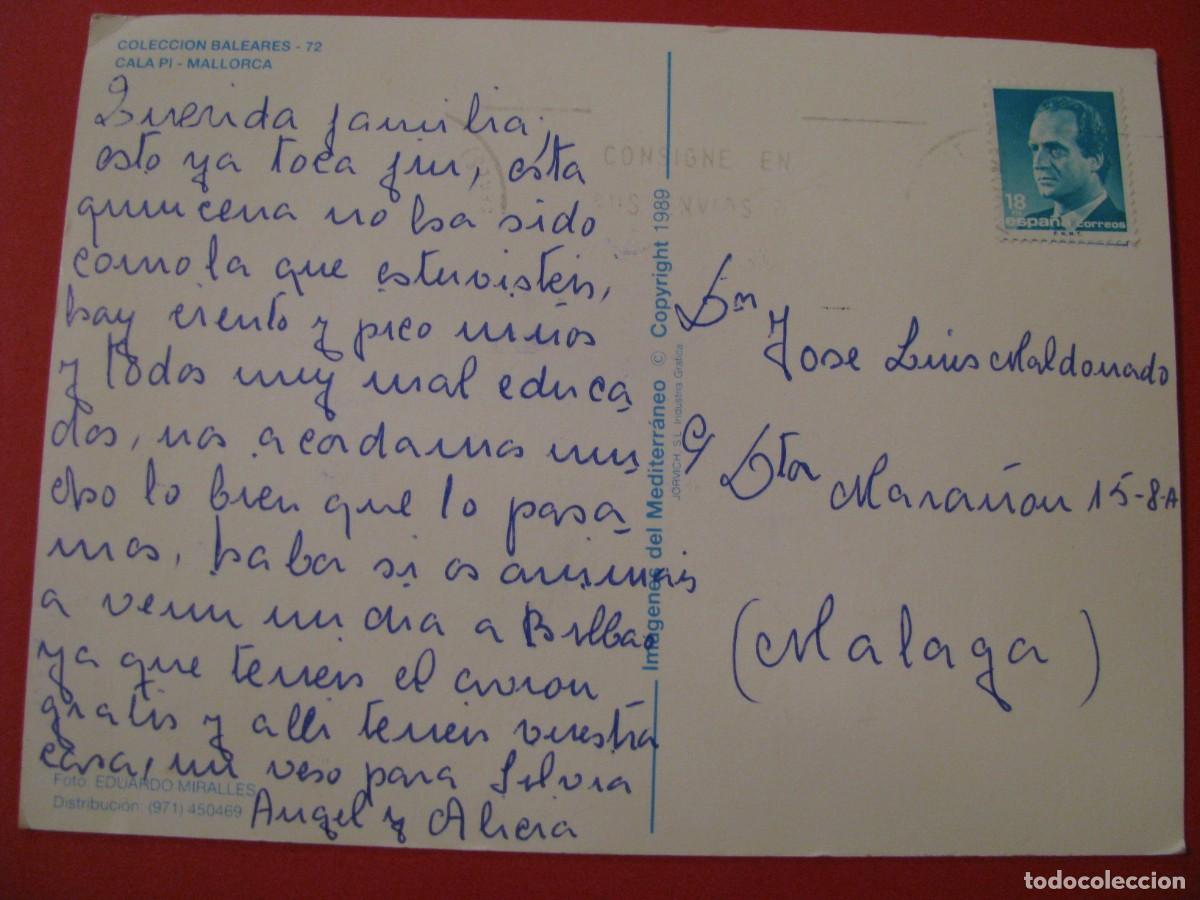 COLECCION BALEARES - 72
CALA PI - MALLORCA
Querida familia,
esto ya toca fin, esta
quincena no ha sido
como la que estuvisteis,
hay ciento y pico niños
y todos muy mal educa
dos, nos acordamos mu
cho lo bien que lo pasa
mos, haba si os animais
a venir un dia a Bilbao
ya que teneis el avion
gratis y alli teneis vuestra
casa, un veso para Silvia
Angel y Alicia
Foto: EDUARDO MIRALLES
Distribución: (971) 450469
Imagenes del Mediterráneo © Copyright 1989
JORVICH, S.L. Industria Gráfica
CONSIGNE EN
SUS ENVIOS
18
españa correos
F.N.M.T.
Dn
Jose Luis Maldonado
C/ Dtor Marañon 15-8-A
(Malaga)
todocoleccion